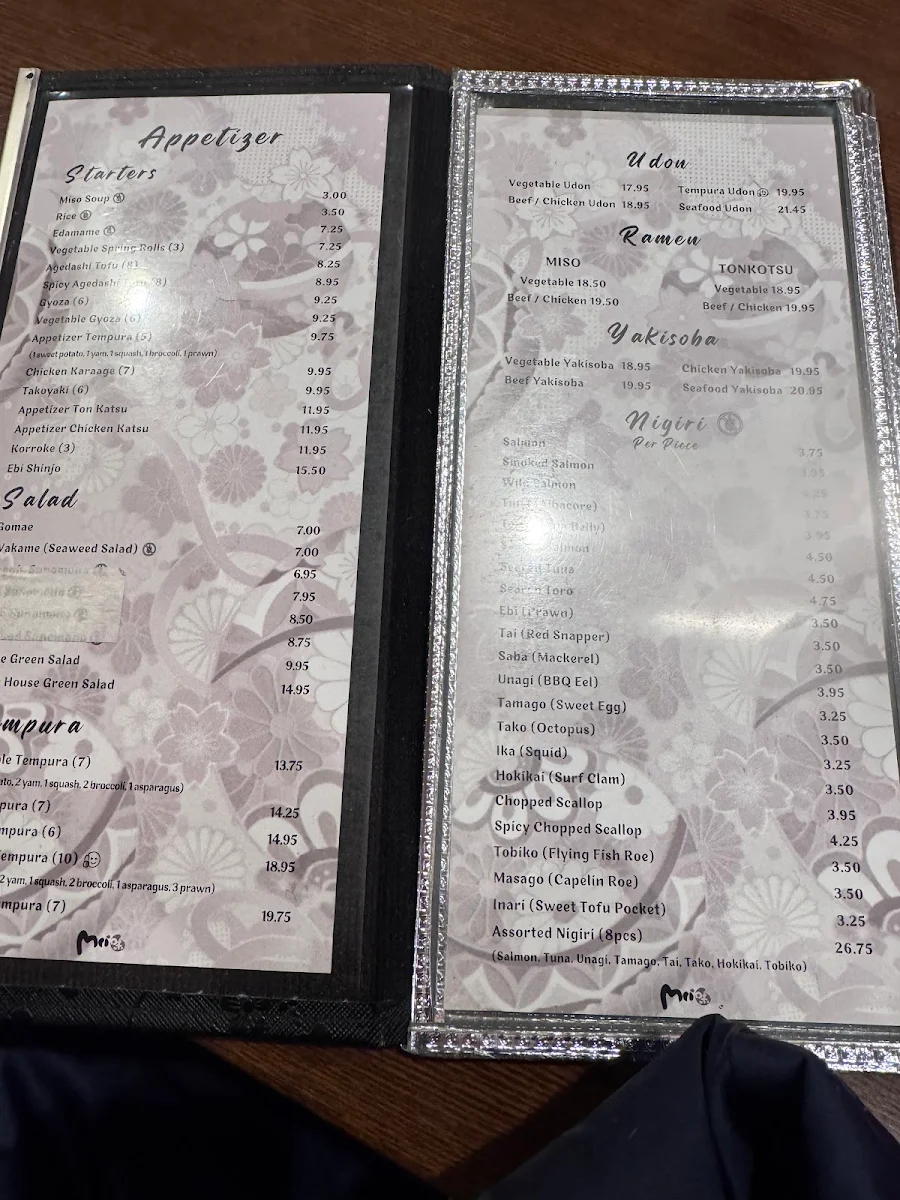 Appetizer
Starters
Miso Soup 3.00
Rice 3.50
Edamame 7.25
Vegetable Spring Rolls (3) 7.25
Agedashi Tofu (8) 8.25
Spicy Agedashi (8) 8.95
Gyoza (6) 9.25
Vegetable Gyoza (6) 9.25
Appetizer Tempura (5) 9.75
(1 sweet potato, 1 yam, 1 squash, 1 broccoli, 1 prawn)
Chicken Karaage (7) 9.95
Takoyaki (6) 9.95
Appetizer Ton Katsu 11.95
Appetizer Chicken Katsu 11.95
Korroke (3) 11.95
Ebi Shinjo 15.50
Salad
Gomae 7.00
Wakame (Seaweed Salad) 7.00
6.95
7.95
8.50
8.75
e Green Salad 9.95
House Green Salad 14.95
mpura
le Tempura (7) 13.75
ato, 2 yam, 1 squash, 2 broccoli, 1 asparagus)
pura (7) 14.25
mpura (6) 14.95
Tempura (10) 18.95
2 yam, 1 squash, 2 broccoli, 1 asparagus, 3 prawn)
mpura (7) 19.75
Udon
Vegetable Udon 17.95 Tempura Udon 19.95
Beef / Chicken Udon 18.95 Seafood Udon 21.45
Ramen
MISO TONKOTSU
Vegetable 18.50 Vegetable 18.95
Beef / Chicken 19.50 Beef / Chicken 19.95
Yakisoba
Vegetable Yakisoba 18.95 Chicken Yakisoba 19.95
Beef Yakisoba 19.95 Seafood Yakisoba 20.95
Nigiri
Per Piece
Salmon 3.75
Smoked Salmon 3.95
Wild Salmon 4.25
Tuna (Albacore) 3.75
3.95
Salmon 4.50
Seared Tuna 4.50
Seared Toro 4.75
Ebi (Prawn) 3.50
Tai (Red Snapper) 3.50
Saba (Mackerel) 3.50
Unagi (BBQ Eel) 3.95
Tamago (Sweet Egg) 3.25
Tako (Octopus) 3.50
Ika (Squid) 3.25
Hokikai (Surf Clam) 3.50
Chopped Scallop 3.95
Spicy Chopped Scallop 4.25
Tobiko (Flying Fish Roe) 3.50
Masago (Capelin Roe) 3.50
Inari (Sweet Tofu Pocket) 3.25
Assorted Nigiri (8pcs) 26.75
(Salmon, Tuna, Unagi, Tamago, Tai, Tako, Hokikai, Tobiko)